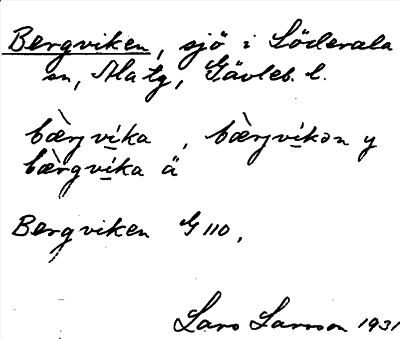 Bergviken, sjö i Söderala
sn, Ala tg, Gävleb. l.
bæ̀rjvi̱ka, bæ̀rjvi̱kən y
bæ̀rgvi̱ka ä
Bergviken G 110,
Lars Larsson 1931